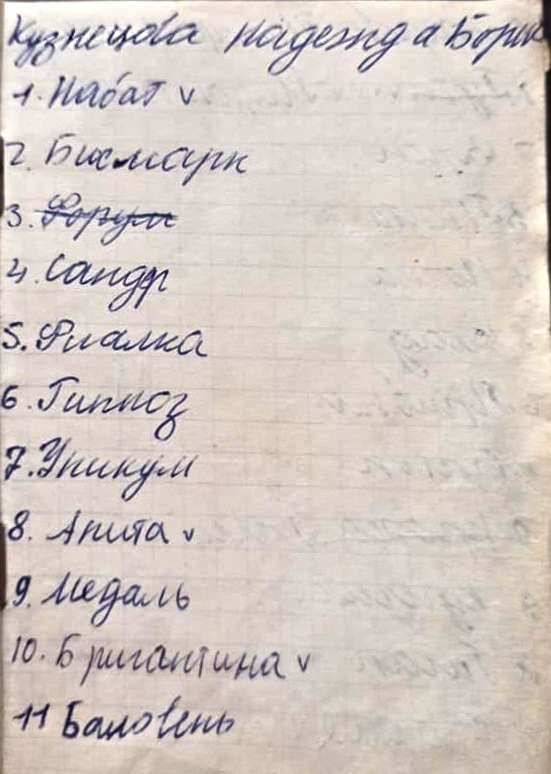 Кузнецова Надежда Борис
1. Набат v
2. Бисмарк
3. Форум
4. Сандр
5. Фиалка
6. Гипноз
7. Уникум
8. Анита v
9. Медаль
10. Бригантина v
11 Баловень